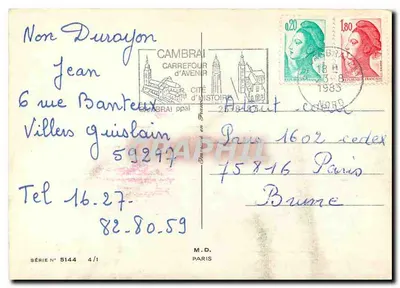 Non Durayon
Jean
6 rue Banteux
Villers Guislain
59297
Tel 16.27.
82.80.59
SÉRIE N° 5144 4/1
CAMBRAI
CARREFOUR
d'AVENIR
CITÉ
d'HISTOIRE
CAMBRAI PPAL
M.D.
PARIS
0,20
1,80
18 H
-8
1983
NORD
Atout coeur
1602 cedex
75816 Paris
Brune